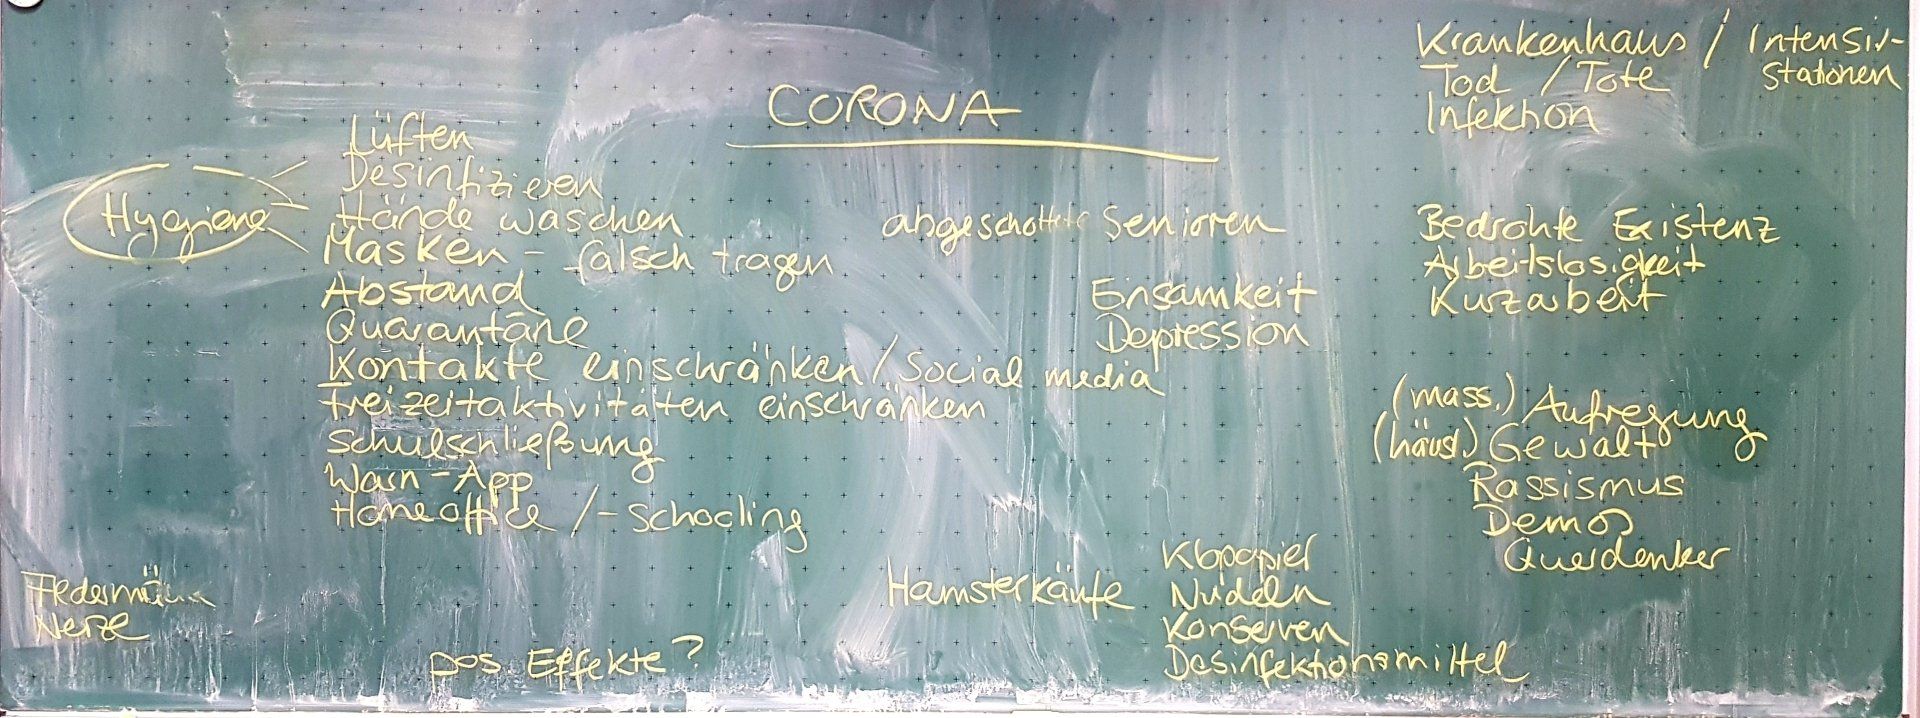 CORONA
Hygiene
Lüften
Desinfizieren
Hände waschen
Masken - falsch tragen
Abstand
Quarantäne
Kontakte einschränken / Social media
Freizeitaktivitäten einschränken
Schulschließung
Warn-App
Homeoffice /-schooling
Nerze
pos Effekte?
abgeschottete Senioren
Einsamkeit
Depression
Hamsterkäufe
Klopapier
Nudeln
Konserven
Desinfektionsmittel
Krankenhaus / Intensiv-
stationen
Tod / Tote
Infektion
Bedrohte Existenz
Arbeitslosigkeit
Kurzarbeit
(mass.) Aufregung
(häusl.) Gewalt
Rassismus
Demos
Querdenker